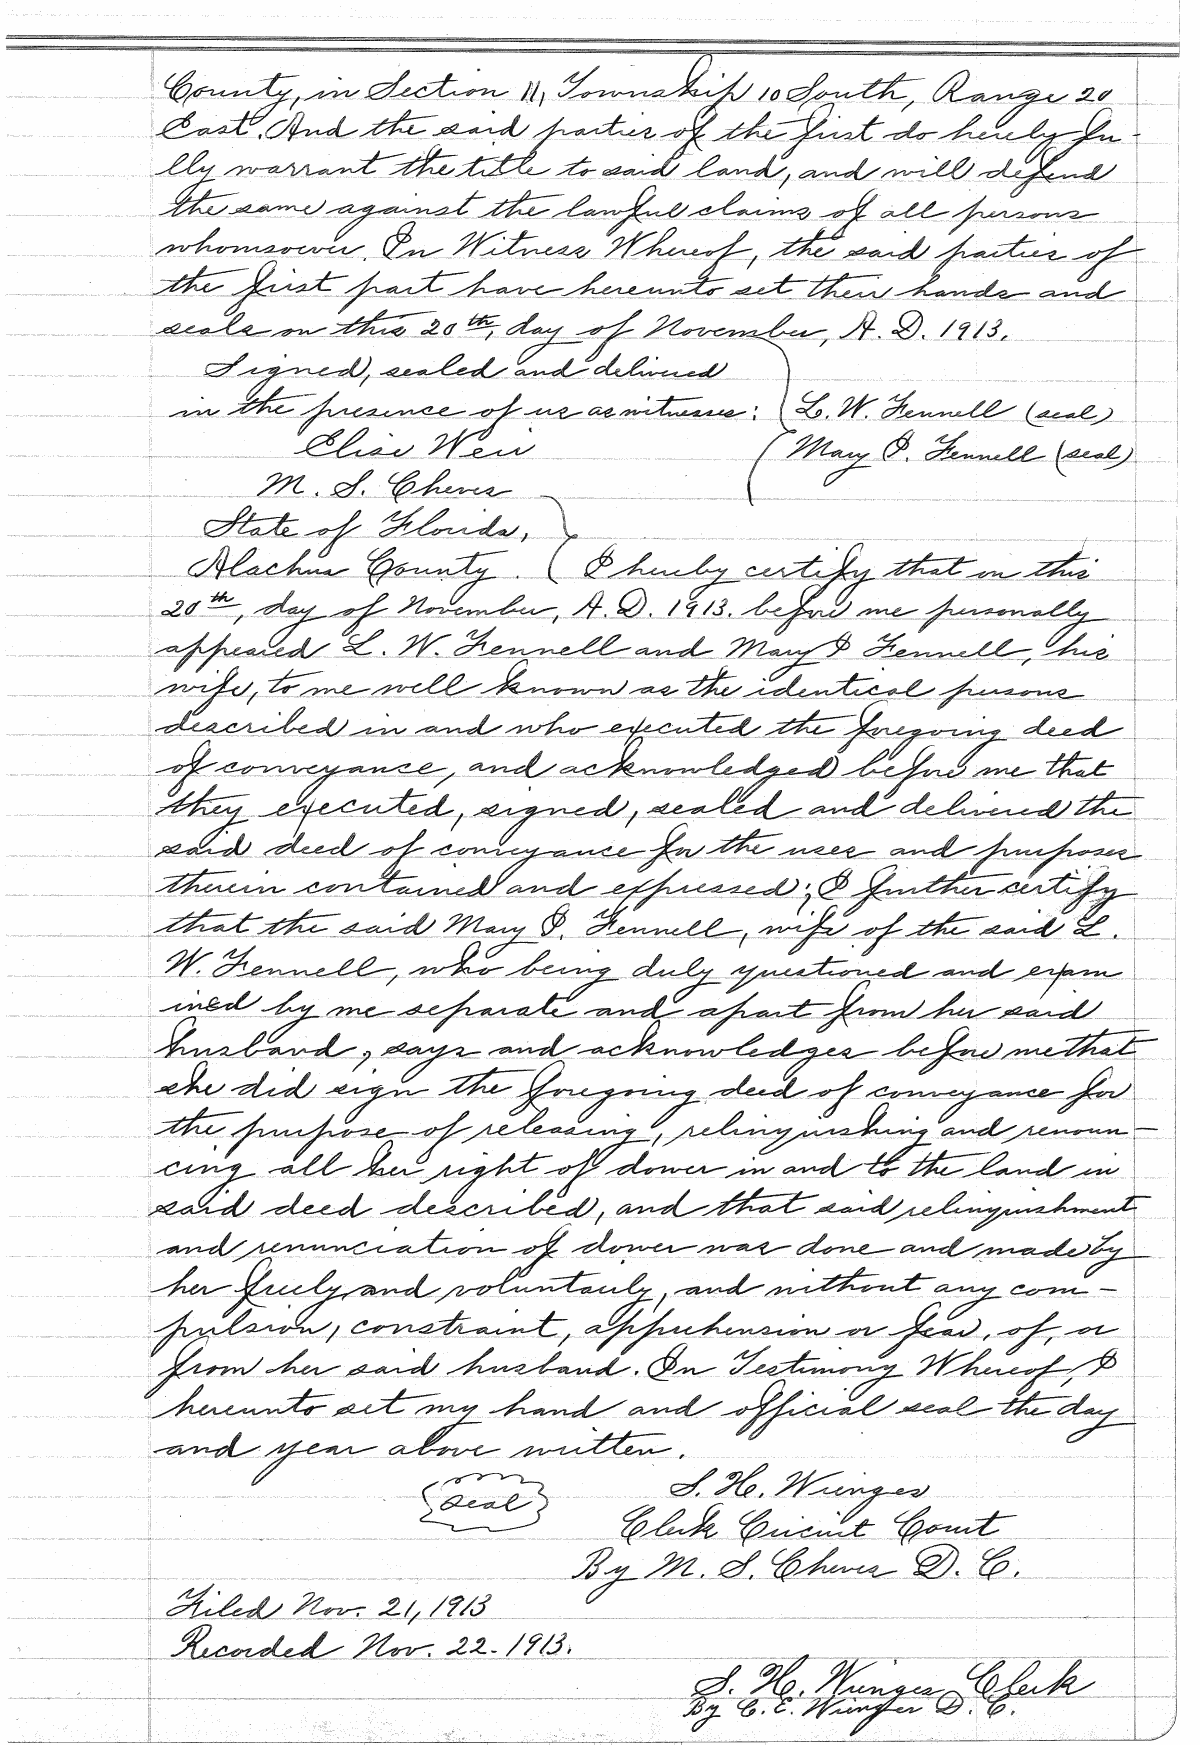 County, in Section 11, Township 10 South, Range 20
East. And the said parties of the first do hereby fu-
lly warrant the title to said land, and will defend
the same against the lawful claims of all persons
whomsoever. In Witness Whereof, the said parties of
the first part have hereunto set their hands and
seals on this 20th, day of November, A. D. 1913.
Signed, sealed and delivered
in the presence of us as witnesses: L. W. Fennell (seal)
Elise Weir Mary P. Fennell (seal)
M. S. Cheves
State of Florida,
Alachua County. ( I hereby certify that on this
20th, day of November, A. D. 1913. before me personally
appeared L. W. Fennell and Mary P Fennell, his
wife, to me well known as the identical persons
described in and who executed the foregoing deed
of conveyance, and acknowledged before me that
they executed, signed, sealed and delivered the
said deed of conveyance for the uses and purposes
therein contained and expressed; I further certify
that the said Mary P. Fennell, wife of the said L.
W. Fennell, who being duly questioned and exam
ined by me separate and apart from her said
husband, says and acknowledges before me that
she did sign the foregoing deed of conveyance for
the purpose of releasing, relinquishing and renoun-
cing all her right of dower in and to the land in
said deed described, and that said relinquishment
and renunciation of dower was done and made by
her freely and voluntarily, and without any com-
pulsion, constraint, apprehension or fear, of, or
from her said husband. In Testimony Whereof, I
hereunto set my hand and official seal the day
and year above written.
S. H. Wienges
seal
Clerk Circuit Court
By M. S. Cheves D. C.
Filed Nov. 21, 1913
Recorded Nov. 22- 1913.
S. H. Wienges Clerk
By C. E. D. C.